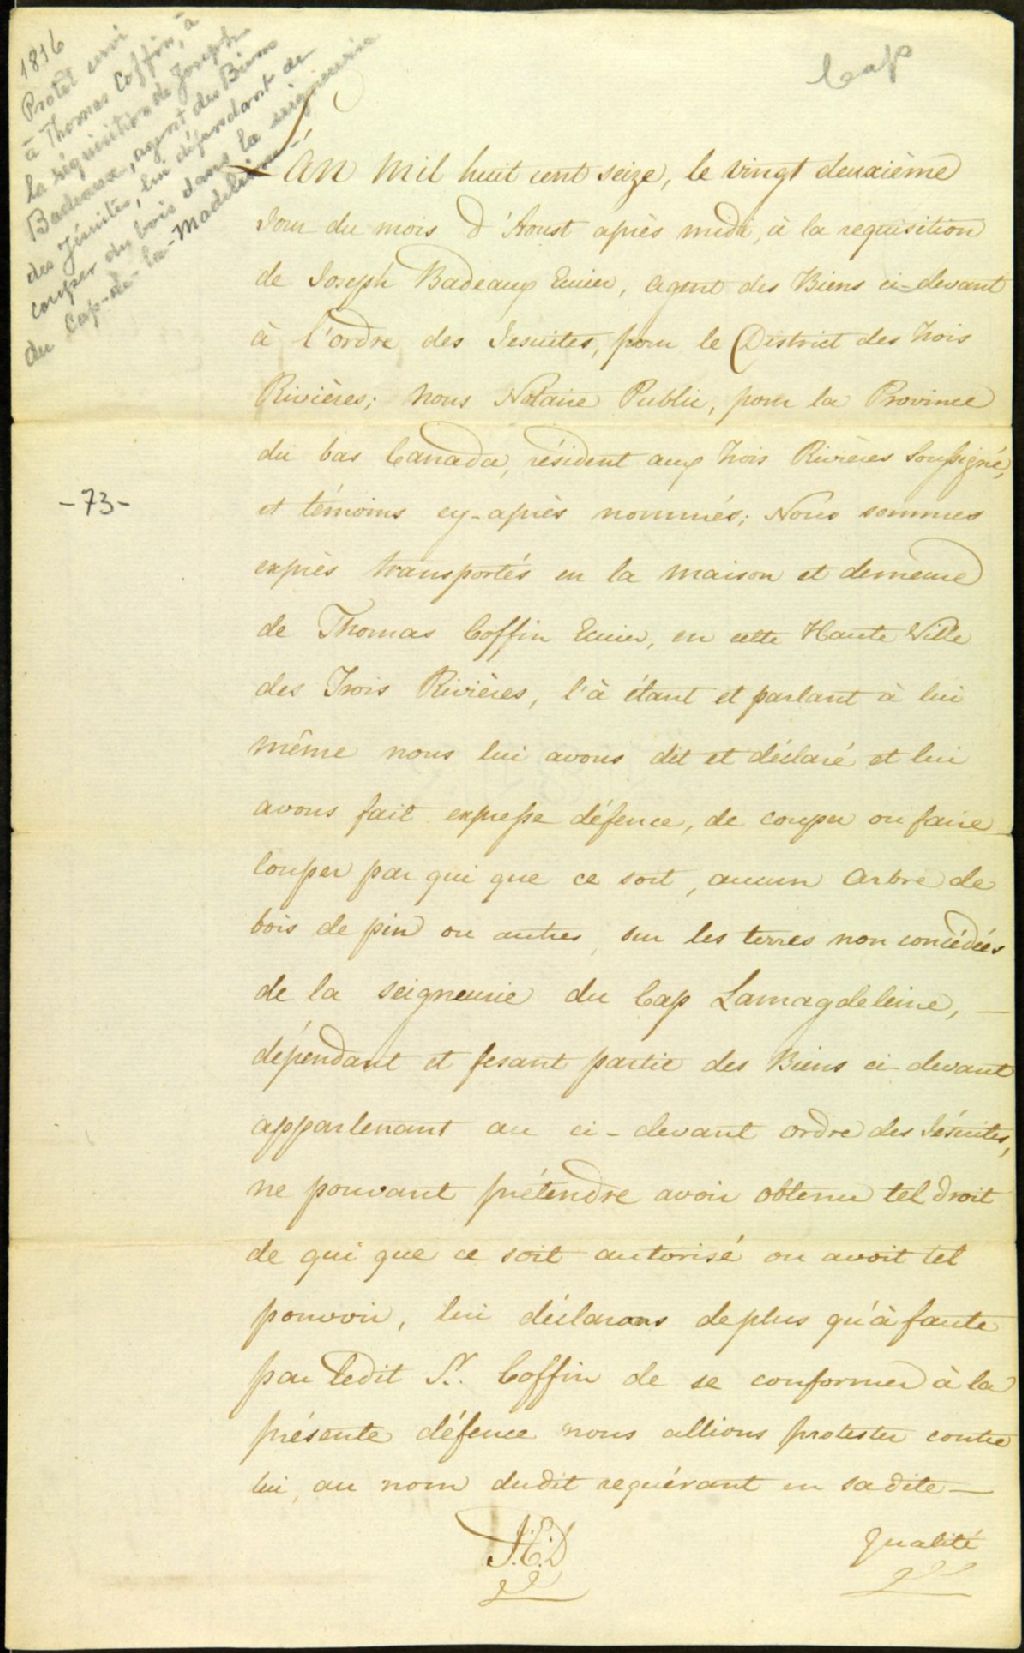 1816
Protêt servi
à Thomas Coffin, à
la réquisition de Joseph
Badeaux, agent des Biens
des Jésuites, lui défendant de
couper du bois dans la seigneurie
du Cap-de-la-Madeleine-
Cap
L'An Mil huit cent seize, le vingt deuxième
Jour du mois d'Aoust après midi, à la requisition
de Joseph Badeaux Ecuier, Agent des Biens ci-devant
à l'ordre des Jesuites, pour le District des trois
Rivières; Nous Notaire Public, pour la Province
du bas Canada, résident aux trois Rivières soussigné,
et témoins cy-après nommés; Nous sommes
exprès transportés en la maison et demeure
-73-
de Thomas Coffin Ecuier, en cette Haute Ville
des Trois Rivières, l'à étant et parlant à lui
même nous lui avons dit et déclaré et lui
avons fait expresse défence, de couper ou faire
couper par qui que ce soit, aucun Arbre de
bois de pin ou autres, sur les terres non concédées
de la seigneurie du Cap Lamagdeleine,
dépendant et fesant partie des Biens ci-devant
appartenant au ci-devant ordre des Jésuites,
ne pouvant prétendre avoir obtenu tel droit
de qui que ce soit autorisé ou avoit tel
pouvoir, lui déclarons deplus qu'à faute
par ledit Sr. Coffin de se conformer à la
présente défence nous allions protester contre
lui, au nom dudit requérant en sa dite—
J.E.D
qualité